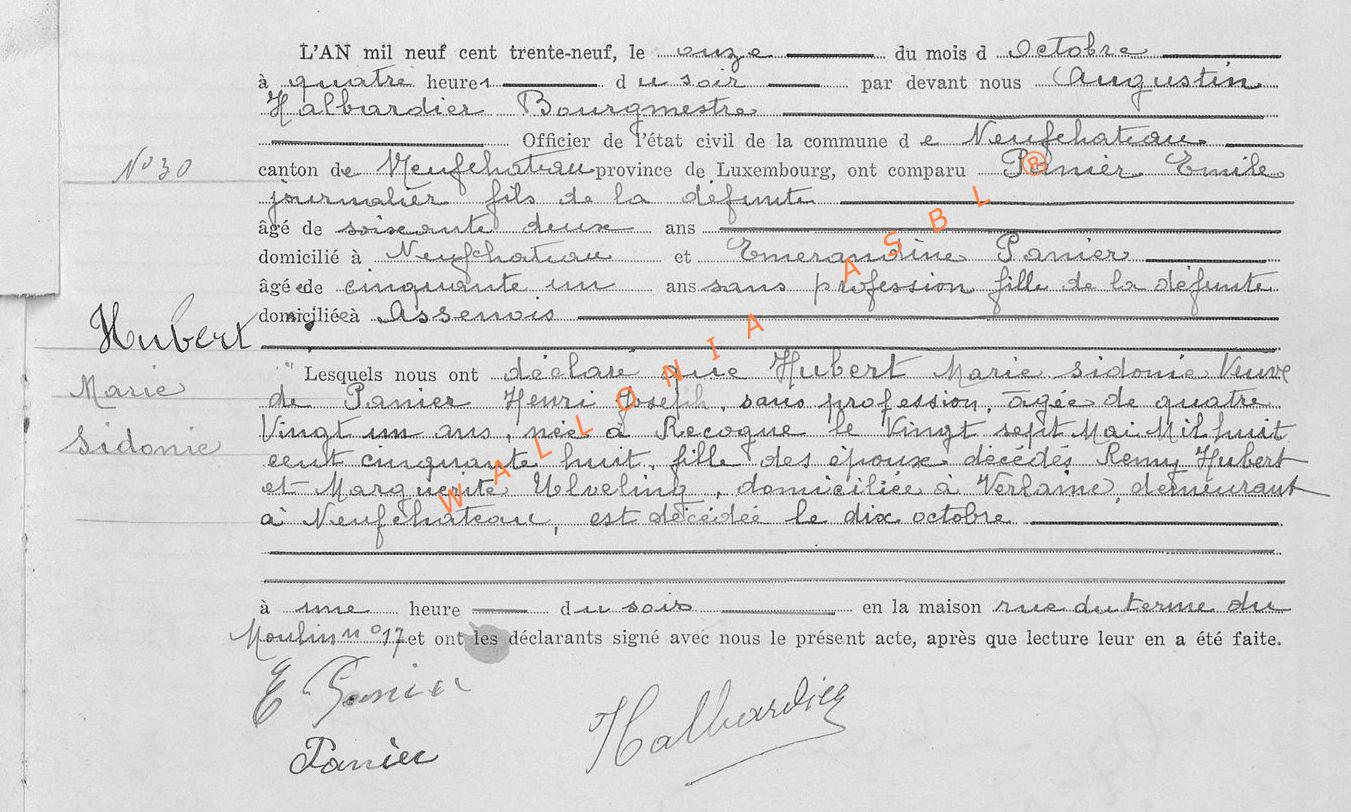 L'AN mil neuf cent trente-neuf, le onze du mois d Octobre
à quatre heures du soir par devant nous Augustin
Halbardier Bourgmestre
Officier de l'état civil de la commune de Neufchateau
N° 30
canton de Neufchateau province de Luxembourg, ont comparu Panier Emile
journalier fils de la défunte
âgé de soixante deux ans
domicilié à Neufchateau et Emerandrine Panier
âgée de cinquante un ans sans profession fille de la défunte
domiciliée à Assenois
Hubert
Marie
Sidonie
Lesquels nous ont déclaré que Hubert Marie Sidonie Veuve
de Panier Henri Joseph, sans profession, âgée de quatre
Vingt un ans, née à Recogne le Vingt sept Mai Mil huit
cent cinquante huit, fille des époux décédés Remy Hubert
et Marguerite Uelveling, domiciliée à Verlaine, demeurant
à Neufchateau, est décédée le dix octobre
à une heure du soir en la maison rue du terme du
Moulin n° 17 et ont les déclarants signé avec nous le présent acte, après que lecture leur en a été faite.
E Panier
Halbardier
Panier
WALLONIA ASBL ®